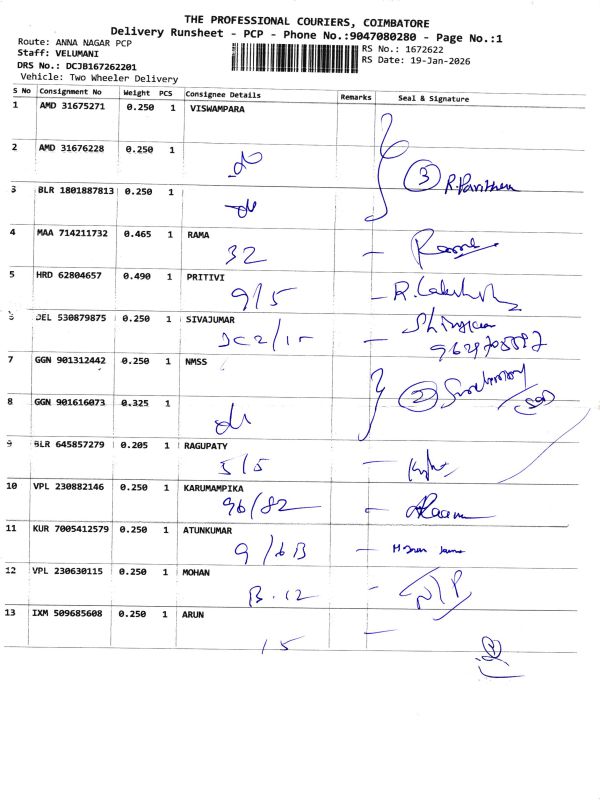 THE PROFESSIONAL COURIERS, COIMBATORE
Delivery Runsheet - PCP - Phone No.:9047080280 - Page No.:1
Route: ANNA NAGAR PCP
Staff: VELUMANI
DRS No.: DCJB167262201
Vehicle: Two Wheeler Delivery
RS No.: 1672622
RS Date: 19-Jan-2026
S No Consignment No Weight PCS Consignee Details Remarks Seal & Signature
1 AMD 31675271 0.250 1 VISWAMPARA
2 AMD 31676228 0.250 1
3 R.
3 BLR 1801887813 0.250 1
4 MAA 714211732 0.465 1 RAMA
32 -
5 HRD 62804657 0.490 1 PRITIVI
9/5 - R.
6 DEL 530879875 0.250 1 SIVAJUMAR
7 GGN 901312442 0.250 1 NMSS
2
8 GGN 901616073 0.325 1
9 BLR 645857279 0.205 1 RAGUPATY
5/5 -
10 VPL 230882146 0.250 1 KARUMAMPIKA
96/82 -
11 KUR 7005412579 0.250 1 ATUNKUMAR
9/6B -
12 VPL 230630115 0.250 1 MOHAN
B.12 -
13 IXM 509685608 0.250 1 ARUN
15 -